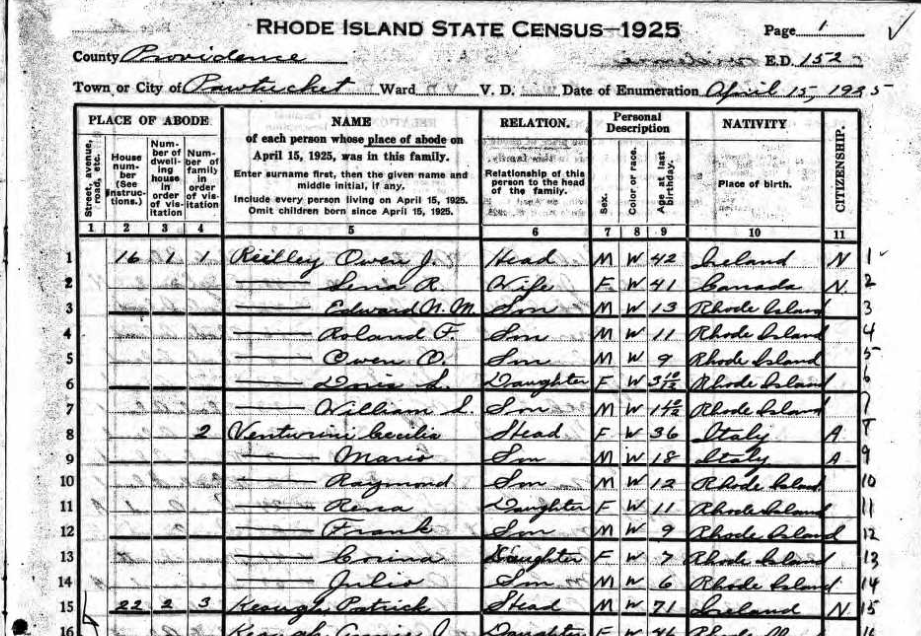 RHODE ISLAND STATE CENSUS—1925 Page 1
County Providence E.D. 152
Town or City of Pawtucket Ward V. D. Date of Enumeration April 15, 1925
PLACE OF ABODE.
Street, avenue, road, etc.
House number (See instructions.)
Number of dwelling house in order of visitation
Number of family in order of visitation
NAME
of each person whose place of abode on
April 15, 1925, was in this family.
Enter surname first, then the given name and
middle initial, if any.
Include every person living on April 15, 1925.
Omit children born since April 15, 1925.
RELATION.
Relationship of this
person to the head
of the family.
Personal
Description
Sex.
Color or race.
Age at last birthday.
NATIVITY
Place of birth.
CITIZENSHIP.
1 2 3 4 5 6 7 8 9 10 11
1 16 1 1 Reilley Owen J. Head M W 42 Ireland N 1
2 —— Lena R. Wife F W 41 Canada N. 2
3 —— Edward N. M. Son M W 13 Rhode Island 3
4 —— Roland F. Son M W 11 Rhode Island 4
5 —— Owen O. Son M W 9 Rhode Island 5
6 —— Doris L. Daughter F W 3 10/12 Rhode Island 6
7 —— William S. Son M W 1 10/12 Rhode Island 7
8 2 Venturini Cecilia Head F W 36 Italy A 8
9 —— Mario Son M W 18 Italy A 9
10 —— Raymond Son M W 12 Rhode Island 10
11 —— Rena Daughter F W 11 Rhode Island 11
12 —— Frank Son M W 9 Rhode Island 12
13 —— Corina Daughter F W 7 Rhode Island 13
14 —— Julio Son M W 6 Rhode Island 14
15 22 2 3 Keough Patrick Head M W 71 Ireland N 15
16 Keough Annie J. Daughter F W 46 Rhode